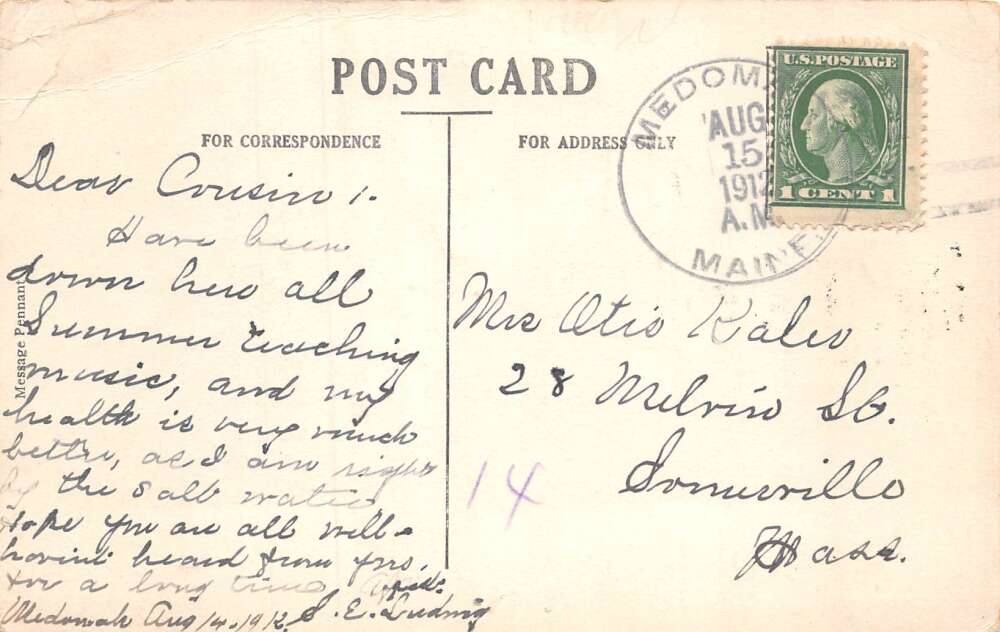 POST CARD
FOR CORRESPONDENCE
FOR ADDRESS ONLY
Message Pennant
MEDOM
AUG
15
1912
A.M.
MAINE.
U.S. POSTAGE
1 CENT 1
Dear Cousin!.
Have been
down here all
Summer teaching
music, and my
health is very much
better, as I am right
by the salt water
Hope you are all well-
havint heard from yrs.
for a long time
Medomak Aug 14-1912. S. E. Ludwig
Mrs Otis Kaler
28 Melvin St.
Somerville
Mass.
14